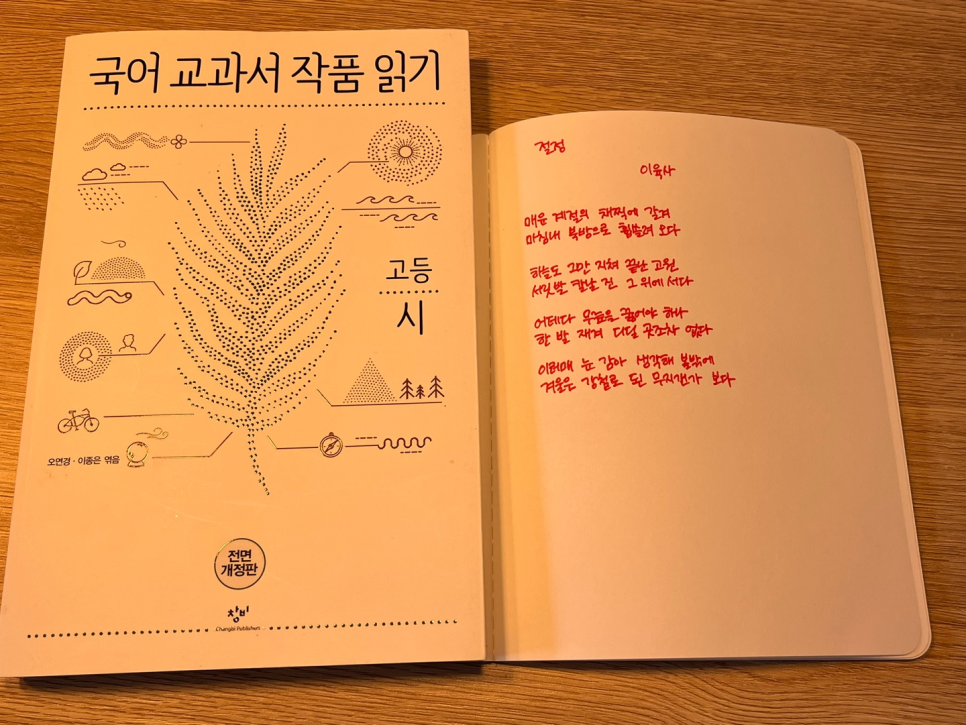 국어 교과서 작품 읽기
고등
시
오연경 · 이종은 엮음
전면
개정판
창비
Changbi Publishers
절정
이육사
매운 계절의 채찍에 갈겨
마침내 북방으로 휩쓸려 오다
하늘도 그만 지쳐 끝난 고원
서릿발 칼날 진 그 위에 서다
어데다 무릎을 꿇어야 하나
한 발 재겨 디딜 곳조차 없다
이러매 눈 감아 생각해 볼밖에
겨울은 강철로 된 무지갠가 보다